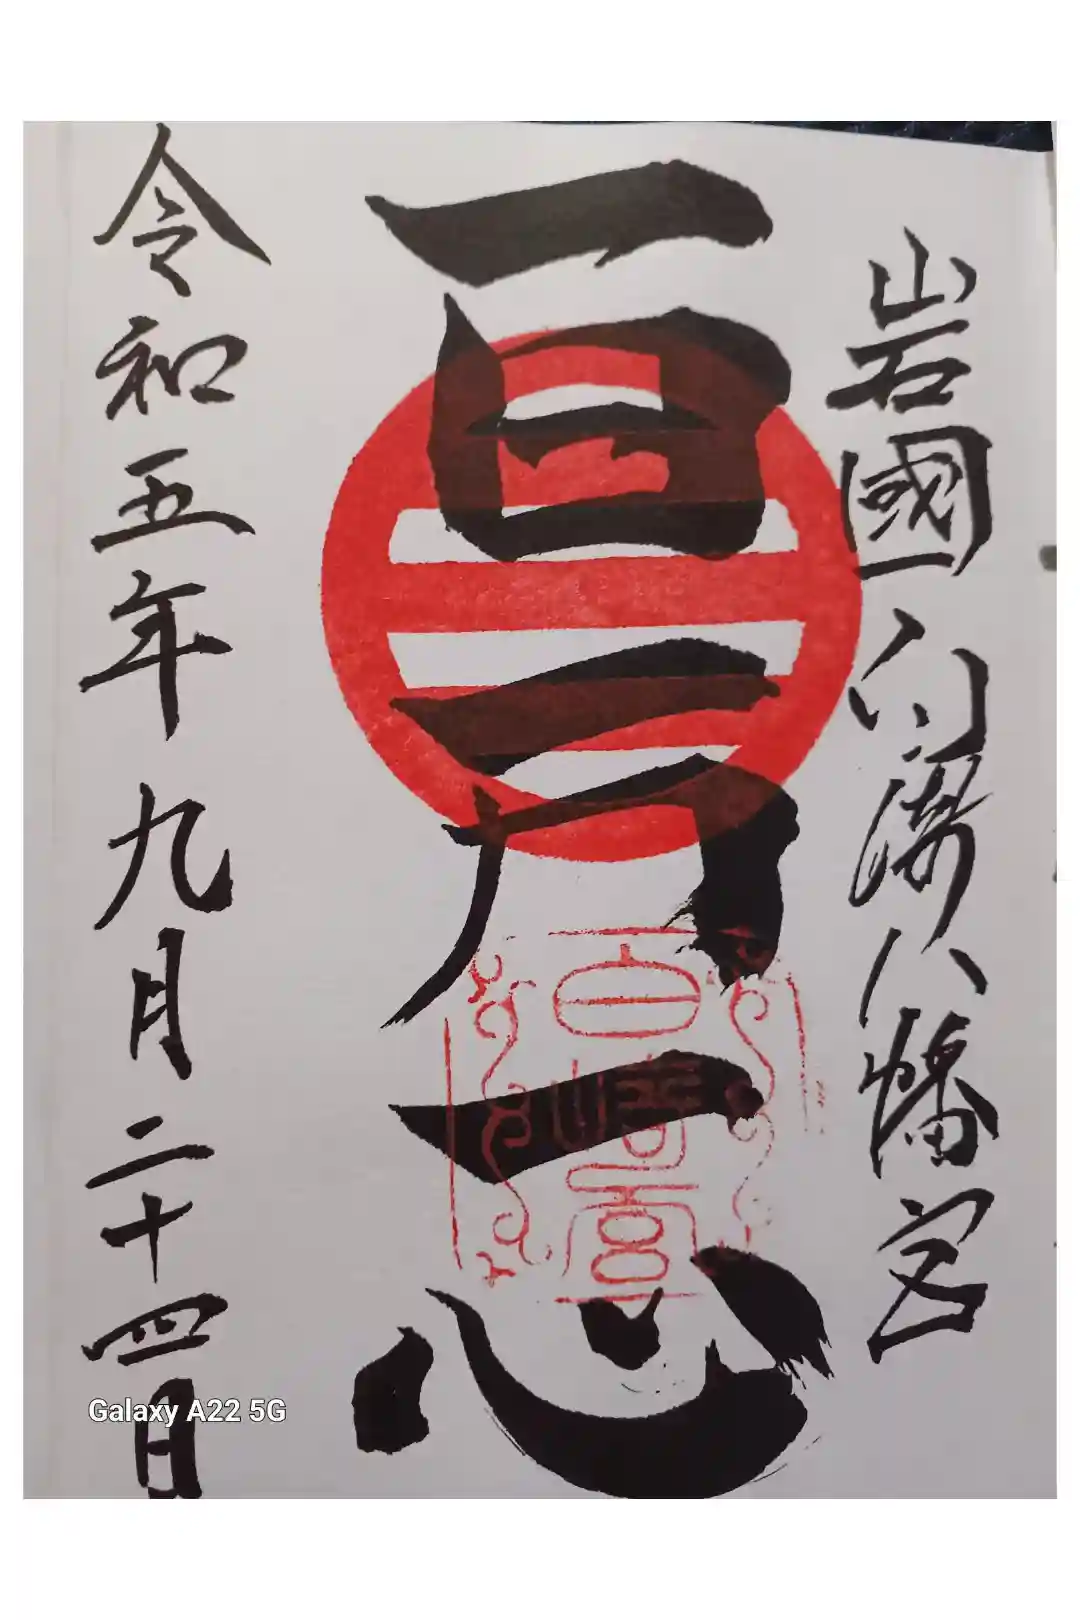 岩國 白崎八幡宮
一日一力一心
白崎宮
令和五年九月二十四日
Galaxy A22 5G